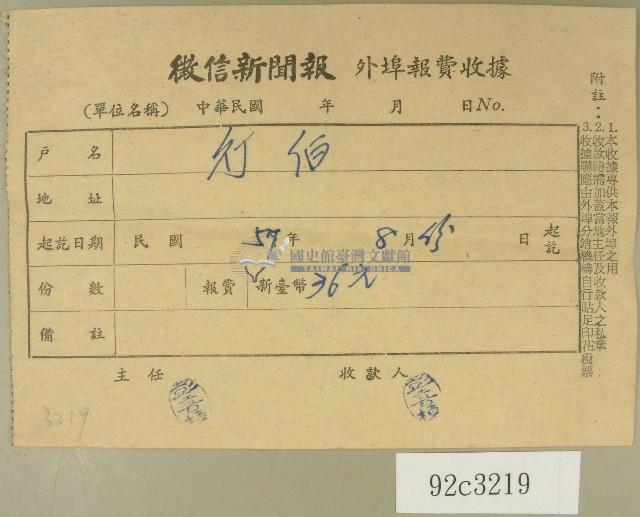 徵信新聞報 外埠報費收據
(單位名稱) 中華民國 年 月 日No.
戶名 伯
地址
起訖日期 民國 年 8月份 日 起訖
份數 報費 新臺幣 36元
備註
主任 收款人
附註：
1.本收據專供本報外埠之用
2.收款時需加蓋當地主任及收款人之私章
3.收據聯應由外埠分銷機構自行貼足印花稅票
國史館臺灣文獻館
TAIWAN HISTORICA
3219
92c3219